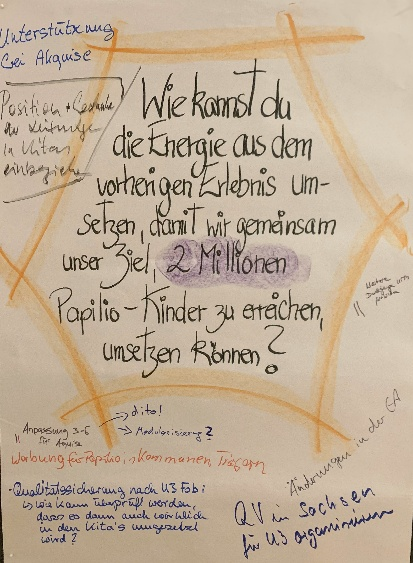 Unterstützung
bei Akquise
Position +
der Leitungen
in Kitas
einbeziehen
Wie kannst du
die Energie aus dem
vorherigen Erlebnis um-
setzen, damit wir gemeinsam
unser Ziel, 2 Millionen
Papilio-Kinder zu erreichen,
umsetzen können?
Anpassung 3-6
für Akquise
→ dito!
→ Modularisierung?
Werbung für Papilio, Kommunen, Trägern
- Qualitätssicherung nach U3 Fobi
wie kann überprüft werden,
dass es dann auch wirklich
in den Kita's umgesetzt
wird?
Änderungen in der EA
QV in Sachsen
für U3 organisieren